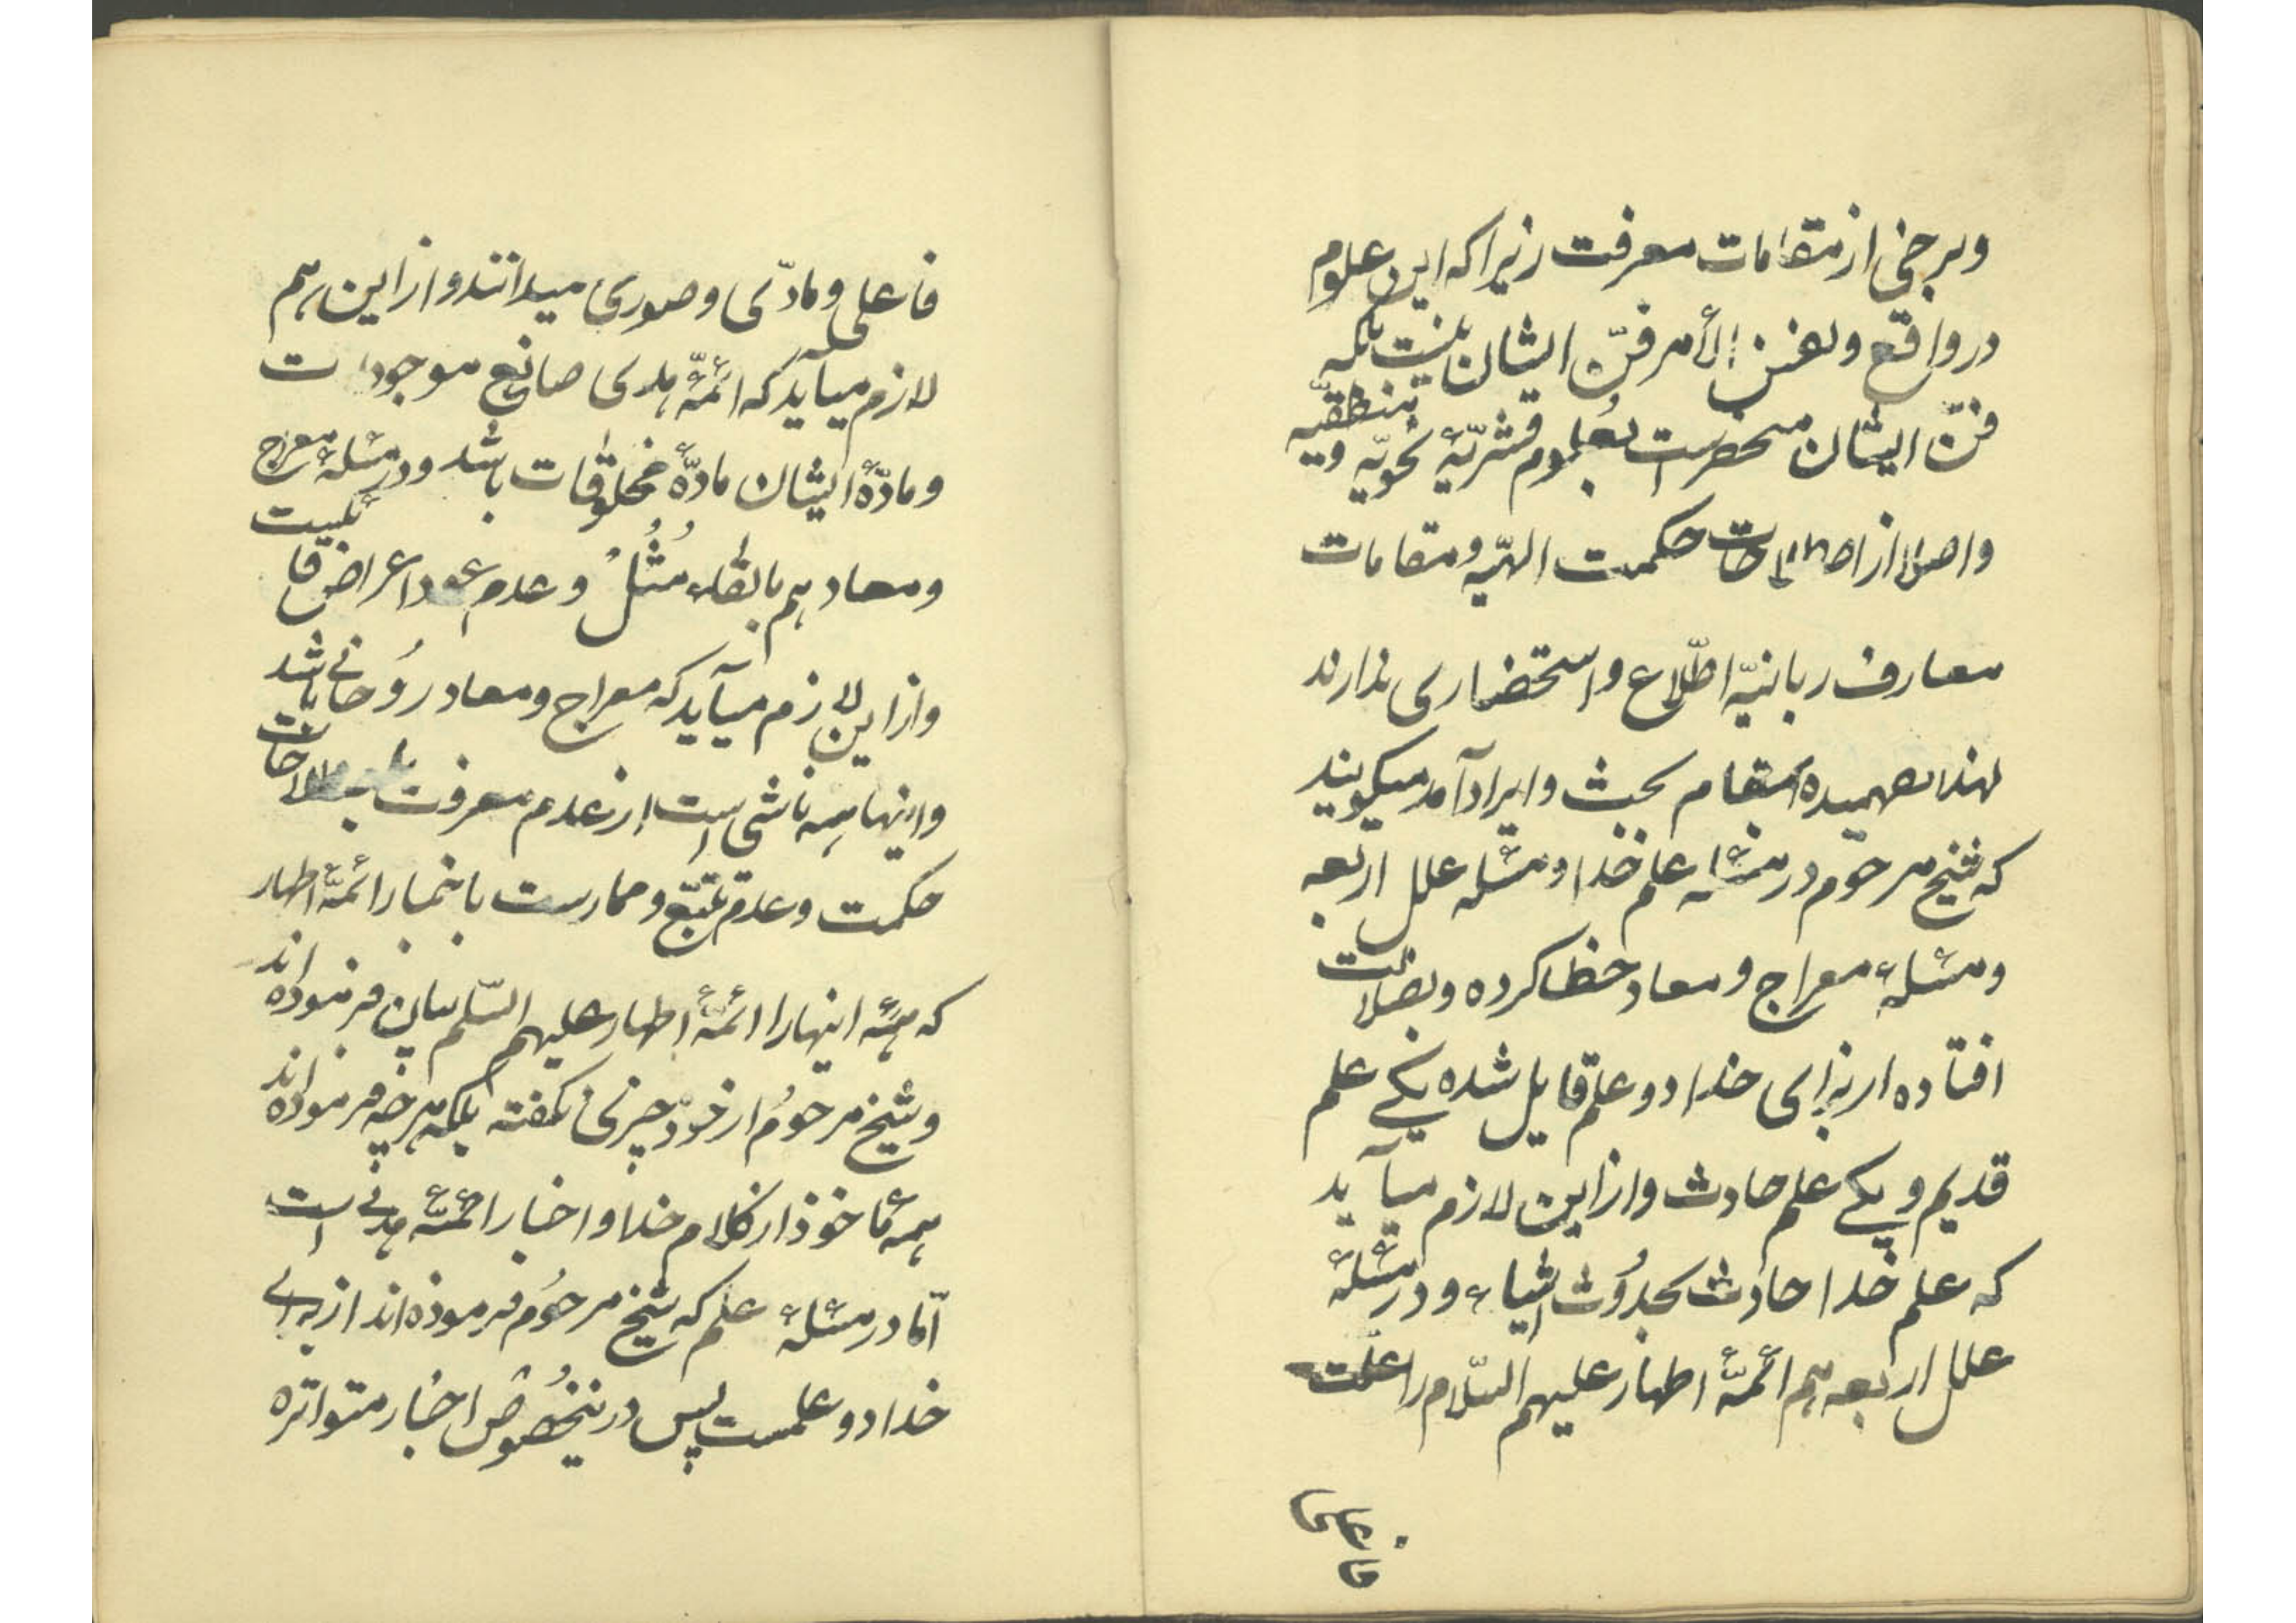 وبرخی از مقامات معرفت زیرا که این علوم
در واقع ونفس الأمر فنّ ایشان نیست بلکه
فنّ ایشان منحصر است بعلوم قشریّهٔ نحویّه و منطقیّه
واصلا از اصطلاحات حکمت الهیّه ومقامات
معارف ربانیّه اطّلاع واستحضاری ندارند
لهذا نفهمیده بمقام بحث وایراد آمده میگویند
که شیخ مرحوم در مسئله علم خدا ومسئله علل اربعه
ومسئلهٔ معراج ومعاد خطا کرده وبضلالت
افتاده از برای خدا دو علم قایل شده یکی علم
قدیم ویکی علم حادث واز این لازم میآید
که علم خدا حادث بحدُوث اشیاء ودر مسئلهٔ
علل اربعه هم ائمّهٔ اطهار علیهم السّلام را علّت
فاعلی
فاعلی ومادّی وصوری میدانند واز این هم
لازم میآید که ائمّهٔ هدی صانع موجودات
ومادّهٔ ایشان مادّهٔ مخلوقات باشد ودر مسئلهٔ معراج
ومعاد هم بالقاء مُثُلْ وعدم عود اعراض قا یکیست
واز این لازم میآید که معراج ومعاد رُوحانی باشد
واینها همه ناشی است از عدم معرفت باصطلاحات
حکمت وعدم تتبّع وممارست باخبار ائمّهٔ اطهار
که همهٔ اینها را ائمّهٔ اطهار علیهم السّلم بیان فرموده اند
وشیخ مرحوُم از خود چیزی نگفته بلکه هرچه فرموده اند
همه مأخوذ از کلام خدا واخبار ائمّهٔ هدی است
امّا در مسئلهٔ علم که شیخ مرحوُم فرموده اند از برای
خدا دو علمست پس در نیخصُوص اخبار متواتره